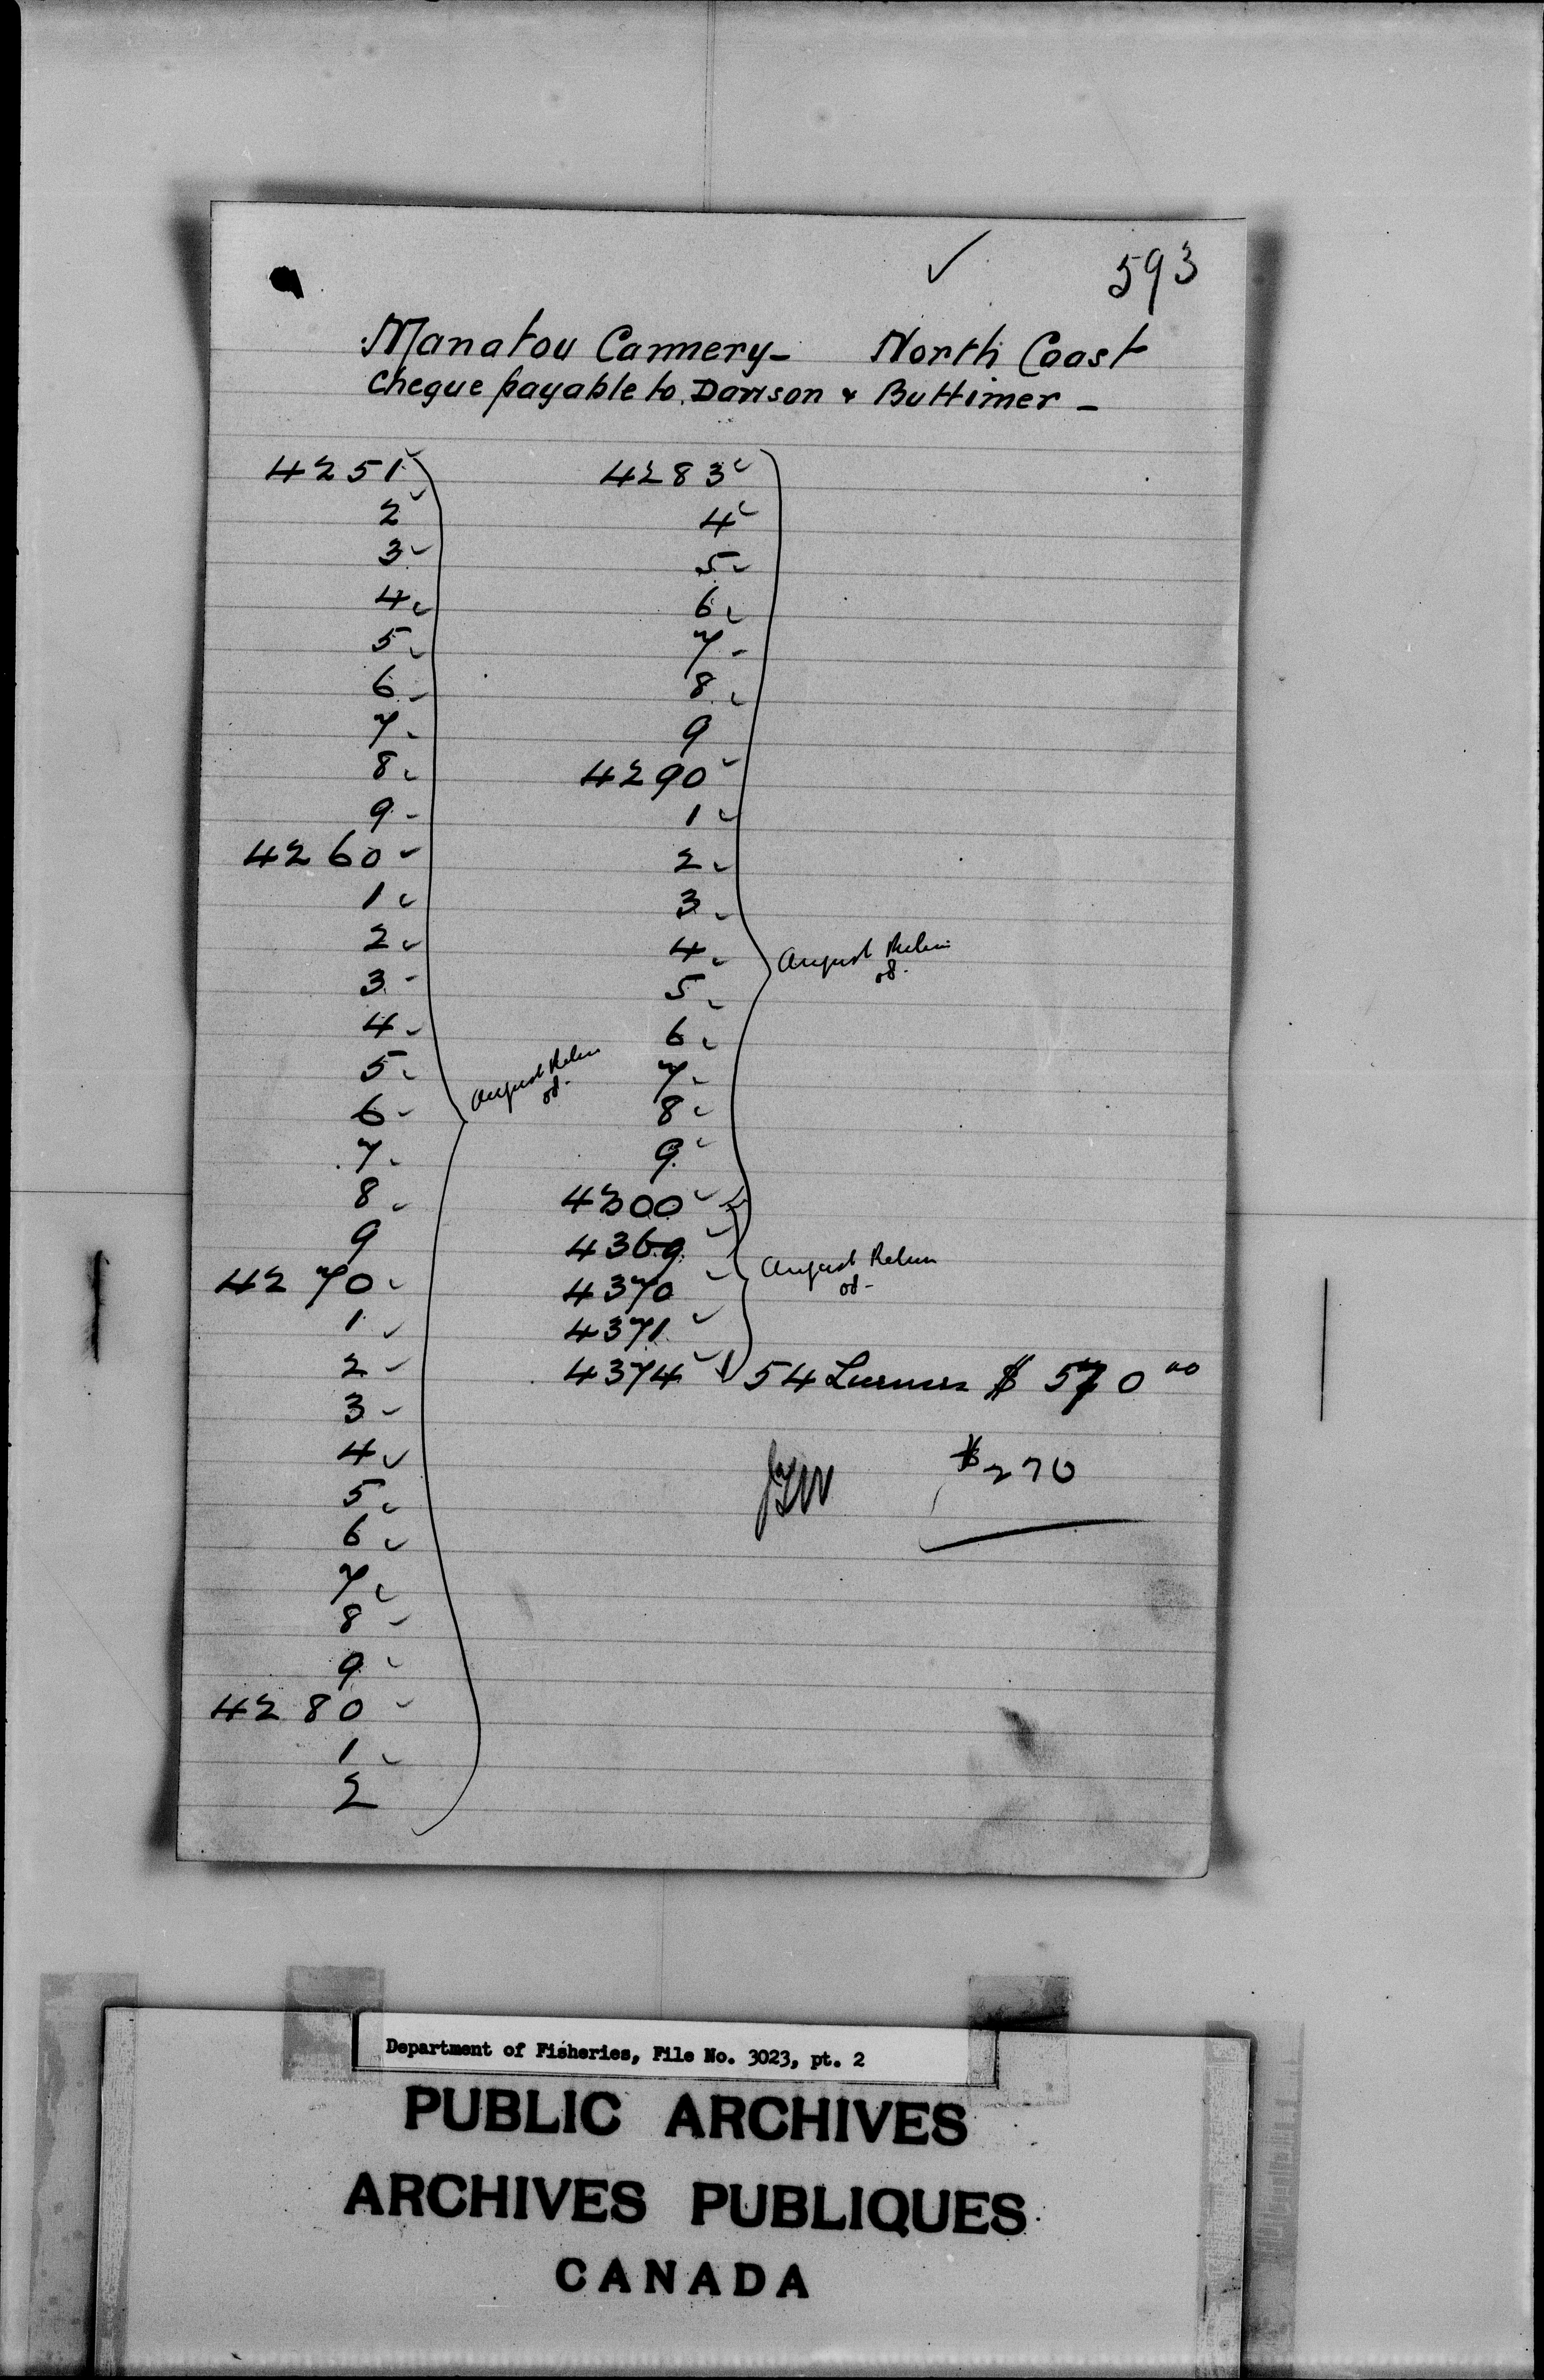 593
Manatou Cannery - North Coast
Cheque payable to Dawson & Buttimer -
4251
2
3
4
5
6
7
8
9
4260
1
2
3
4
5
6
7
8
9
4270
1
2
3
4
5
6
7
8
9
4280
1
2
August
4283
4
5
6
7
8
9
4290
1
2
3
4
5
6
7
8
9
4300
August
4369
4370
4371
4374
August
54 $ 570 00
$270
Department of Fisheries, File No. 3023, pt. 2
PUBLIC ARCHIVES
ARCHIVES PUBLIQUES
CANADA